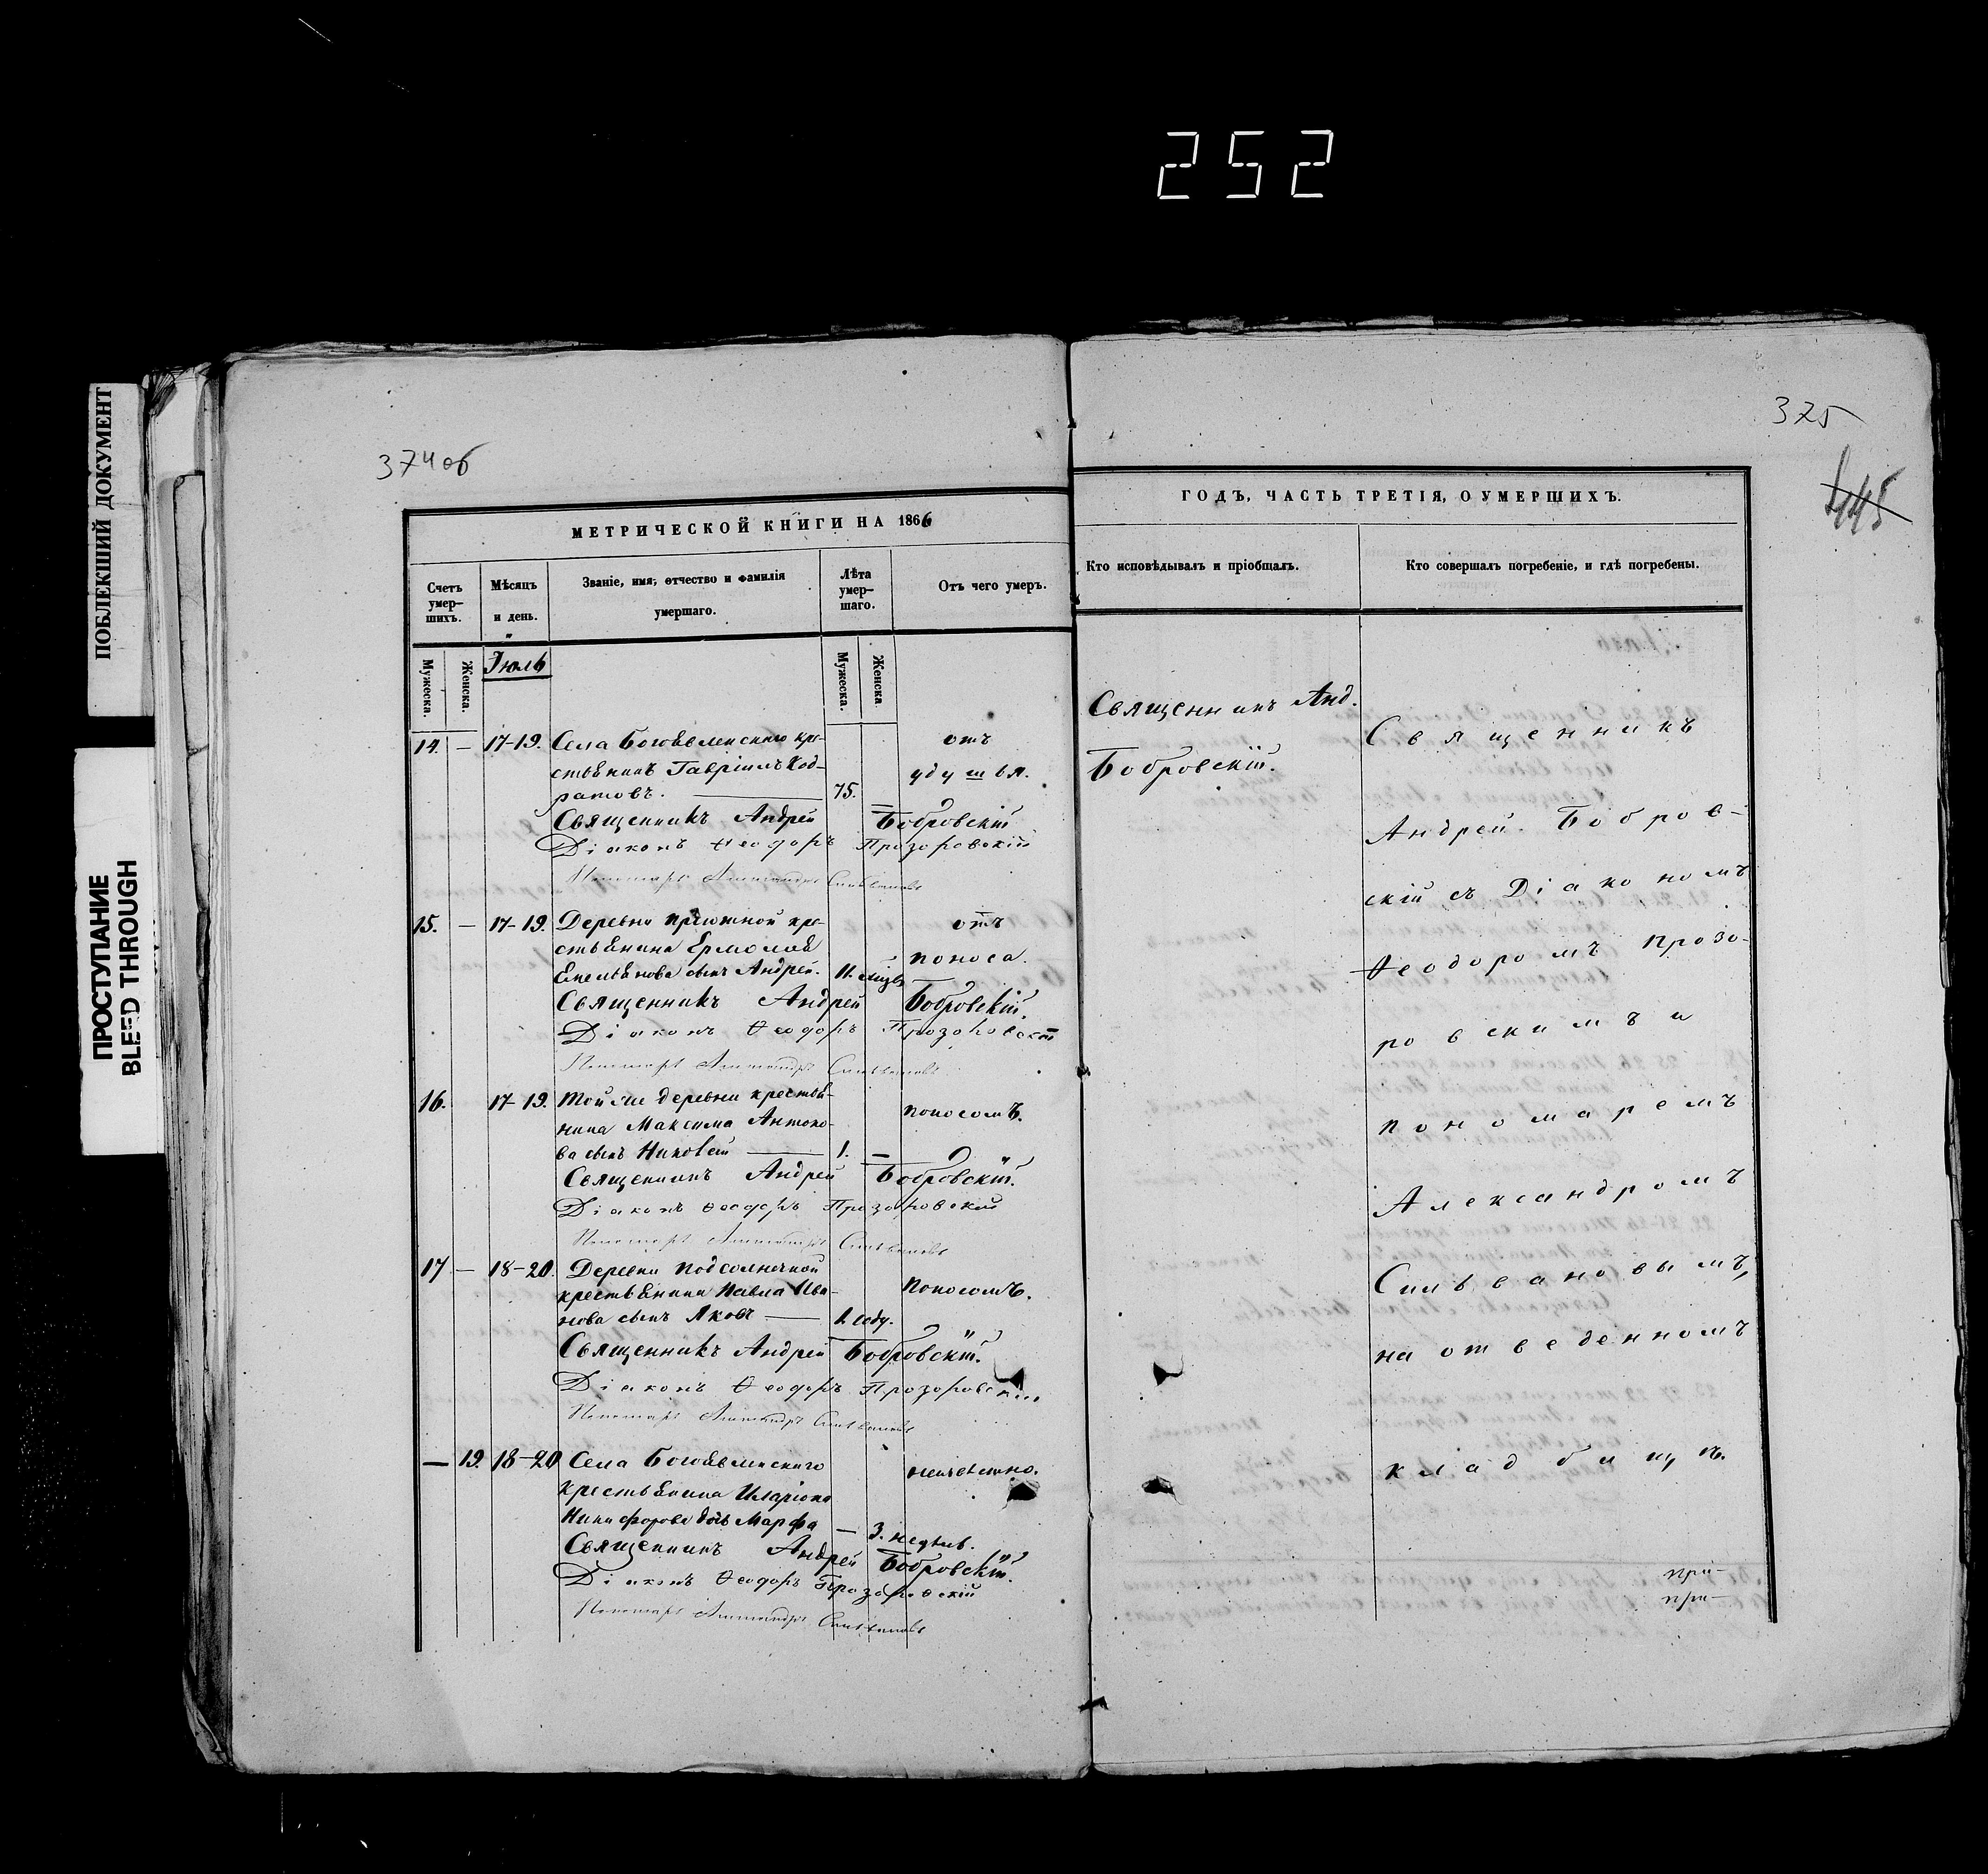 252
ПОБЛЕКШИЙ ДОКУМЕНТ
ПРОСТУПАНИЕ
BLEED THROUGH
374об
МЕТРИЧЕСКОЙ КНИГИ НА 1866
Счетъ умер-шихъ.
Мѣсяцъ и день.
Званіе, имя, отчество и фамилія умершаго.
Лѣта умер-шаго.
Отъ чего умеръ.
Мужеска.
Женска.
Іюль
Мужеска.
Женска.
14. — 17-19. Села Богоявленскаго кре- отъ
стьянинъ Гавріилъ Код- удушья.
ратовъ. 75.
Священникъ Андрей Бобровскій
Діаконъ Ѳеодоръ Прозоровскій
Пономарь Александръ Сильвановъ
15. — 17-19. Деревни кре- отъ
стьянина Ермолая поноса.
Емельянова сынъ Андрей. 11. мѣсяц
Священникъ Андрей Бобровскій.
Діаконъ Ѳеодоръ Прозоровскій
Пономарь Александръ Сильвановъ
16. 17-19. Той же деревни крестья-
нина Максима Антоно- поносомъ.
ва сынъ 1. —
Священникъ Андрей Бобровскій.
Діаконъ Ѳеодоръ Прозоровскій
Пономарь Александръ Сильвановъ
17 — 18-20. Деревни Подсолнечной
крестьянина Павла Ива- поносомъ.
нова сынъ Яковъ — 1. году.
Священникъ Андрей Бобровскій.
Діаконъ Ѳеодоръ Прозоровскій
Пономарь Александръ Сильвановъ
— 19. 18-20 Села Богоявленскаго неизвѣстно.
крестьянина Иларіона
Никифорова дочь Марфа — 3. недѣль.
Священникъ Андрей Бобровскій.
Діаконъ Ѳеодоръ Прозоровскій
Пономарь Александръ Сильвановъ
375
445
ГОДЪ, ЧАСТЬ ТРЕТІЯ, О УМЕРШИХЪ.
Кто исповѣдывалъ и пріобщалъ.
Кто совершалъ погребеніе, и гдѣ погребены.
Священникъ Анд.
Бобровскій.
Священникъ
Андрей Бобров-
скій съ Діакономъ
Ѳеодоромъ Прозо-
ровскимъ и
пономаремъ
Александромъ
Сильвановымъ,
на отведенномъ
кладбищѣ.
при-
при-